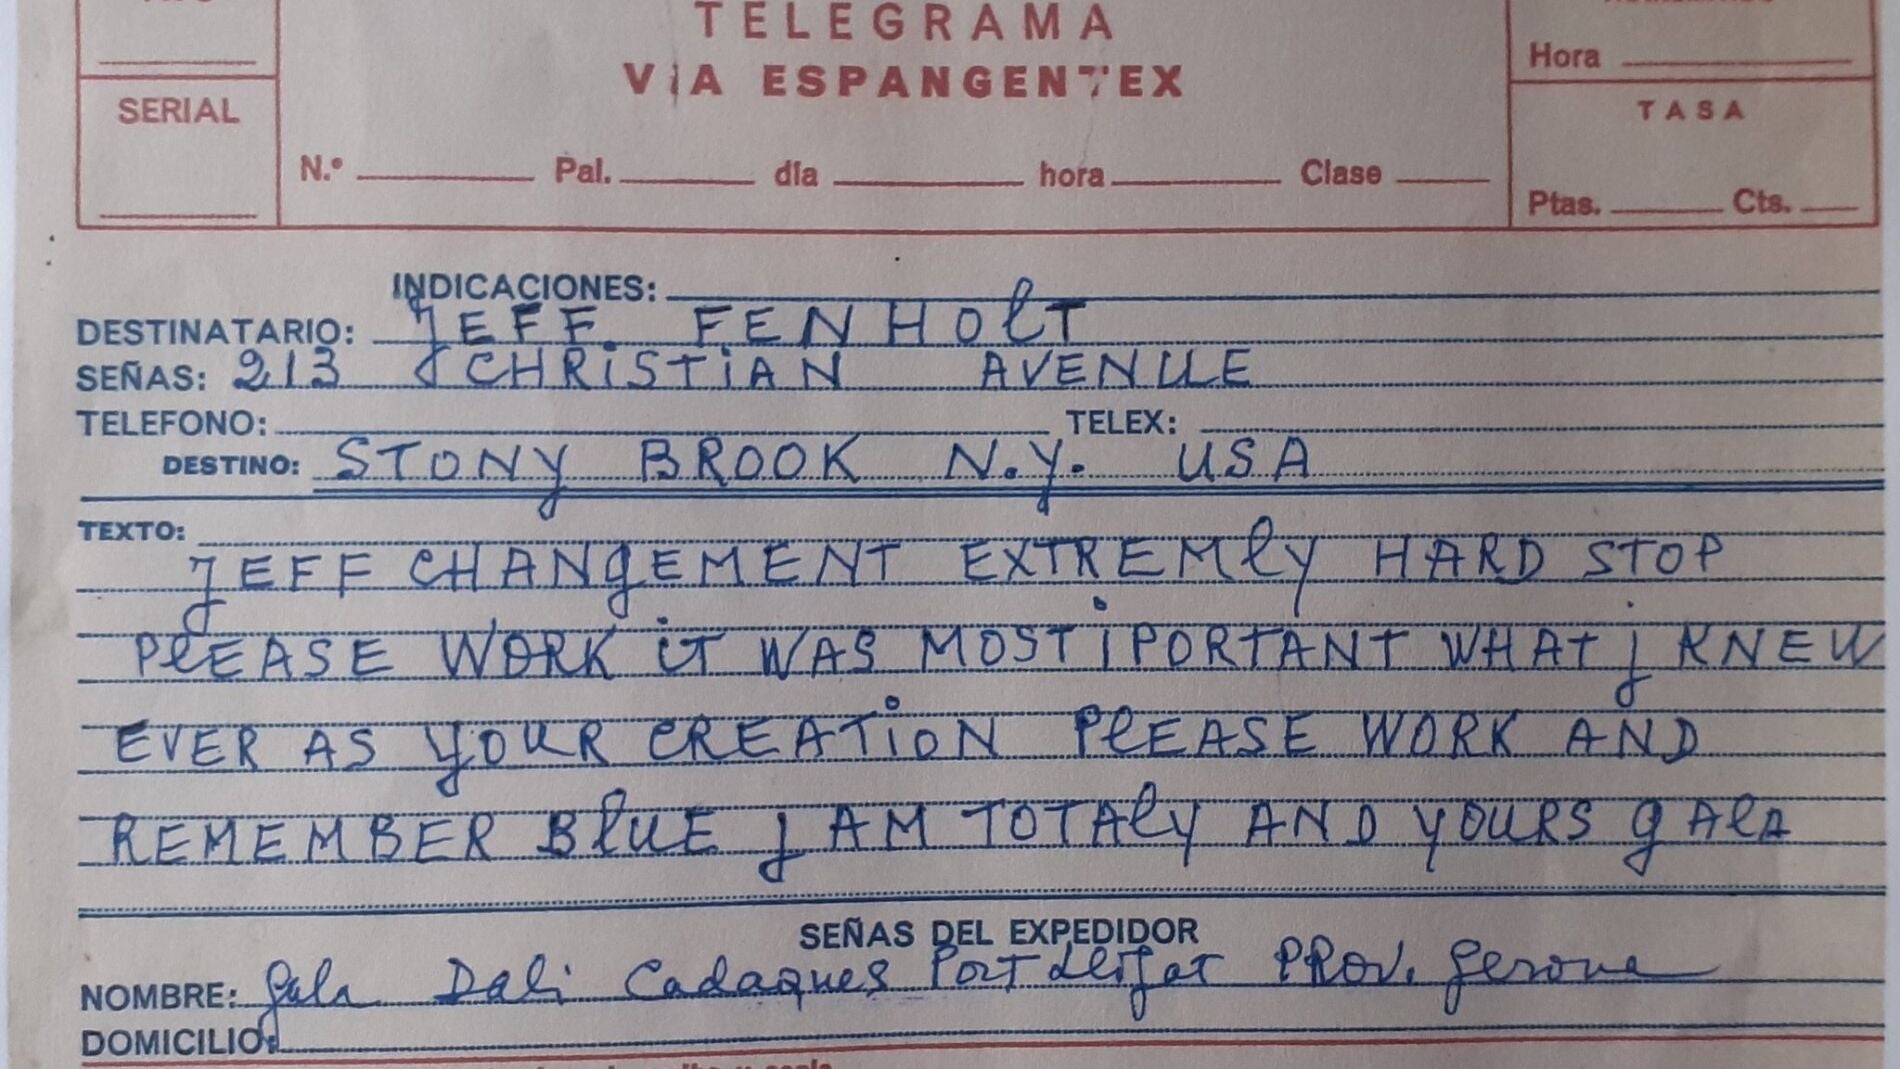 TELEGRAMA
VIA ESPANGENTEX
Hora
SERIAL
TASA
N.º Pal. día hora Clase
Ptas. Cts.
INDICACIONES:
DESTINATARIO: JEFF. FENHOlT
SEÑAS: 213 CHRiSTiAN AVENUE
TELEFONO: TELEX:
DESTINO: STONy BROOK N.y. USA
TEXTO:
JEFF CHANgEMENT EXTREMly HARD STOP
PlEASE WORK iT WAS MOST iPORTANT WHAT j KNEW
EVER AS yOUR CREATiON PlEASE WORK AND
REMEMBER BlUE j AM TOTAly AND yOURS gAlA
SEÑAS DEL EXPEDIDOR
NOMBRE: gala Dali Cadaques Port lligat PROV. gerona
DOMICILIO: